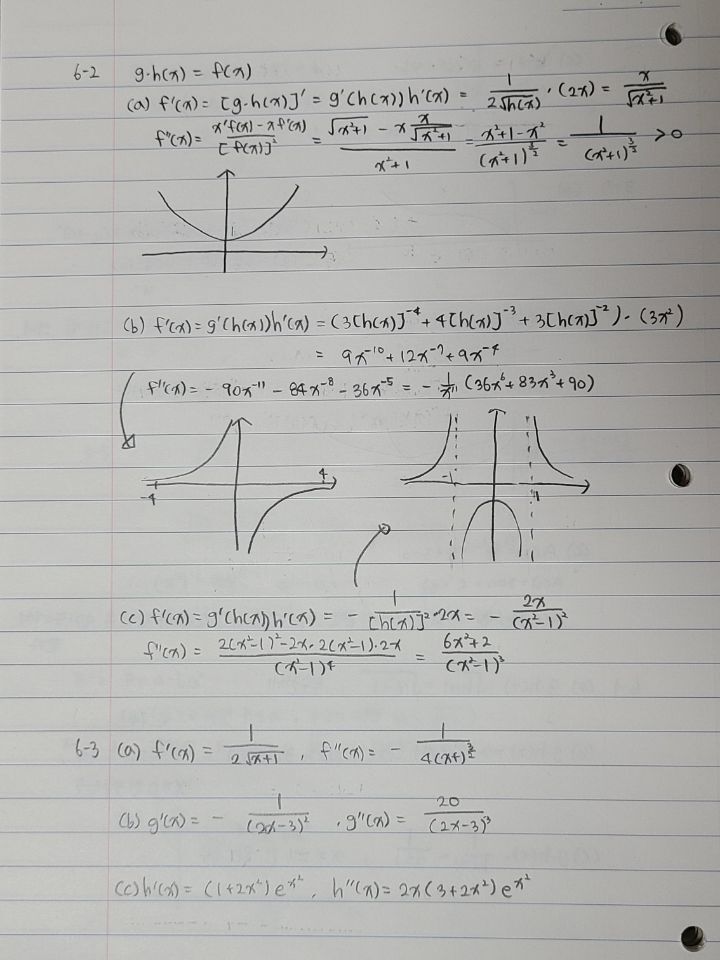 6-2 g·h(x) = f(x)
(a) f'(x) = [g·h(x)]' = g'(h(x))h'(x) = 1/(2√h(x)) · (2x) = x/√(x²+1)
f''(x) = (x'f(x) - xf'(x))/[f(x)]² = (√(x²+1) - x x/√(x²+1))/(x²+1) = (x²+1-x²)/(x²+1)^(3/2) = 1/(x²+1)^(3/2) > 0
1
(b) f'(x) = g'(h(x))h'(x) = (3[h(x)]⁻⁴ + 4[h(x)]⁻³ + 3[h(x)]⁻²) · (3x²)
= 9x⁻¹⁰ + 12x⁻⁷ + 9x⁻⁴
f''(x) = - 90x⁻¹¹ - 84x⁻⁸ - 36x⁻⁵ = - 1/x¹¹ (36x⁶ + 83x³ + 90)
-4 4 -1 1
(c) f'(x) = g'(h(x))h'(x) = - 1/[h(x)]² · 2x = - 2x/(x²-1)²
f''(x) = (2(x²-1)² - 2x · 2(x²-1) · 2x)/(x²-1)⁴ = (6x²+2)/(x²-1)³
6-3 (a) f'(x) = 1/(2√(x+1)) , f''(x) = - 1/(4(x+)^(3/2))
(b) g'(x) = - 1/(2x-3)² , g''(x) = 20/(2x-3)³
(c) h'(x) = (1+2x²)e^(x²) , h''(x) = 2x(3+2x²)e^(x²)